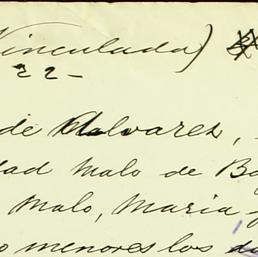 Vinculada)
22-
de Alvares,
dad Malo de Ba
Malo, Maria
o menores los